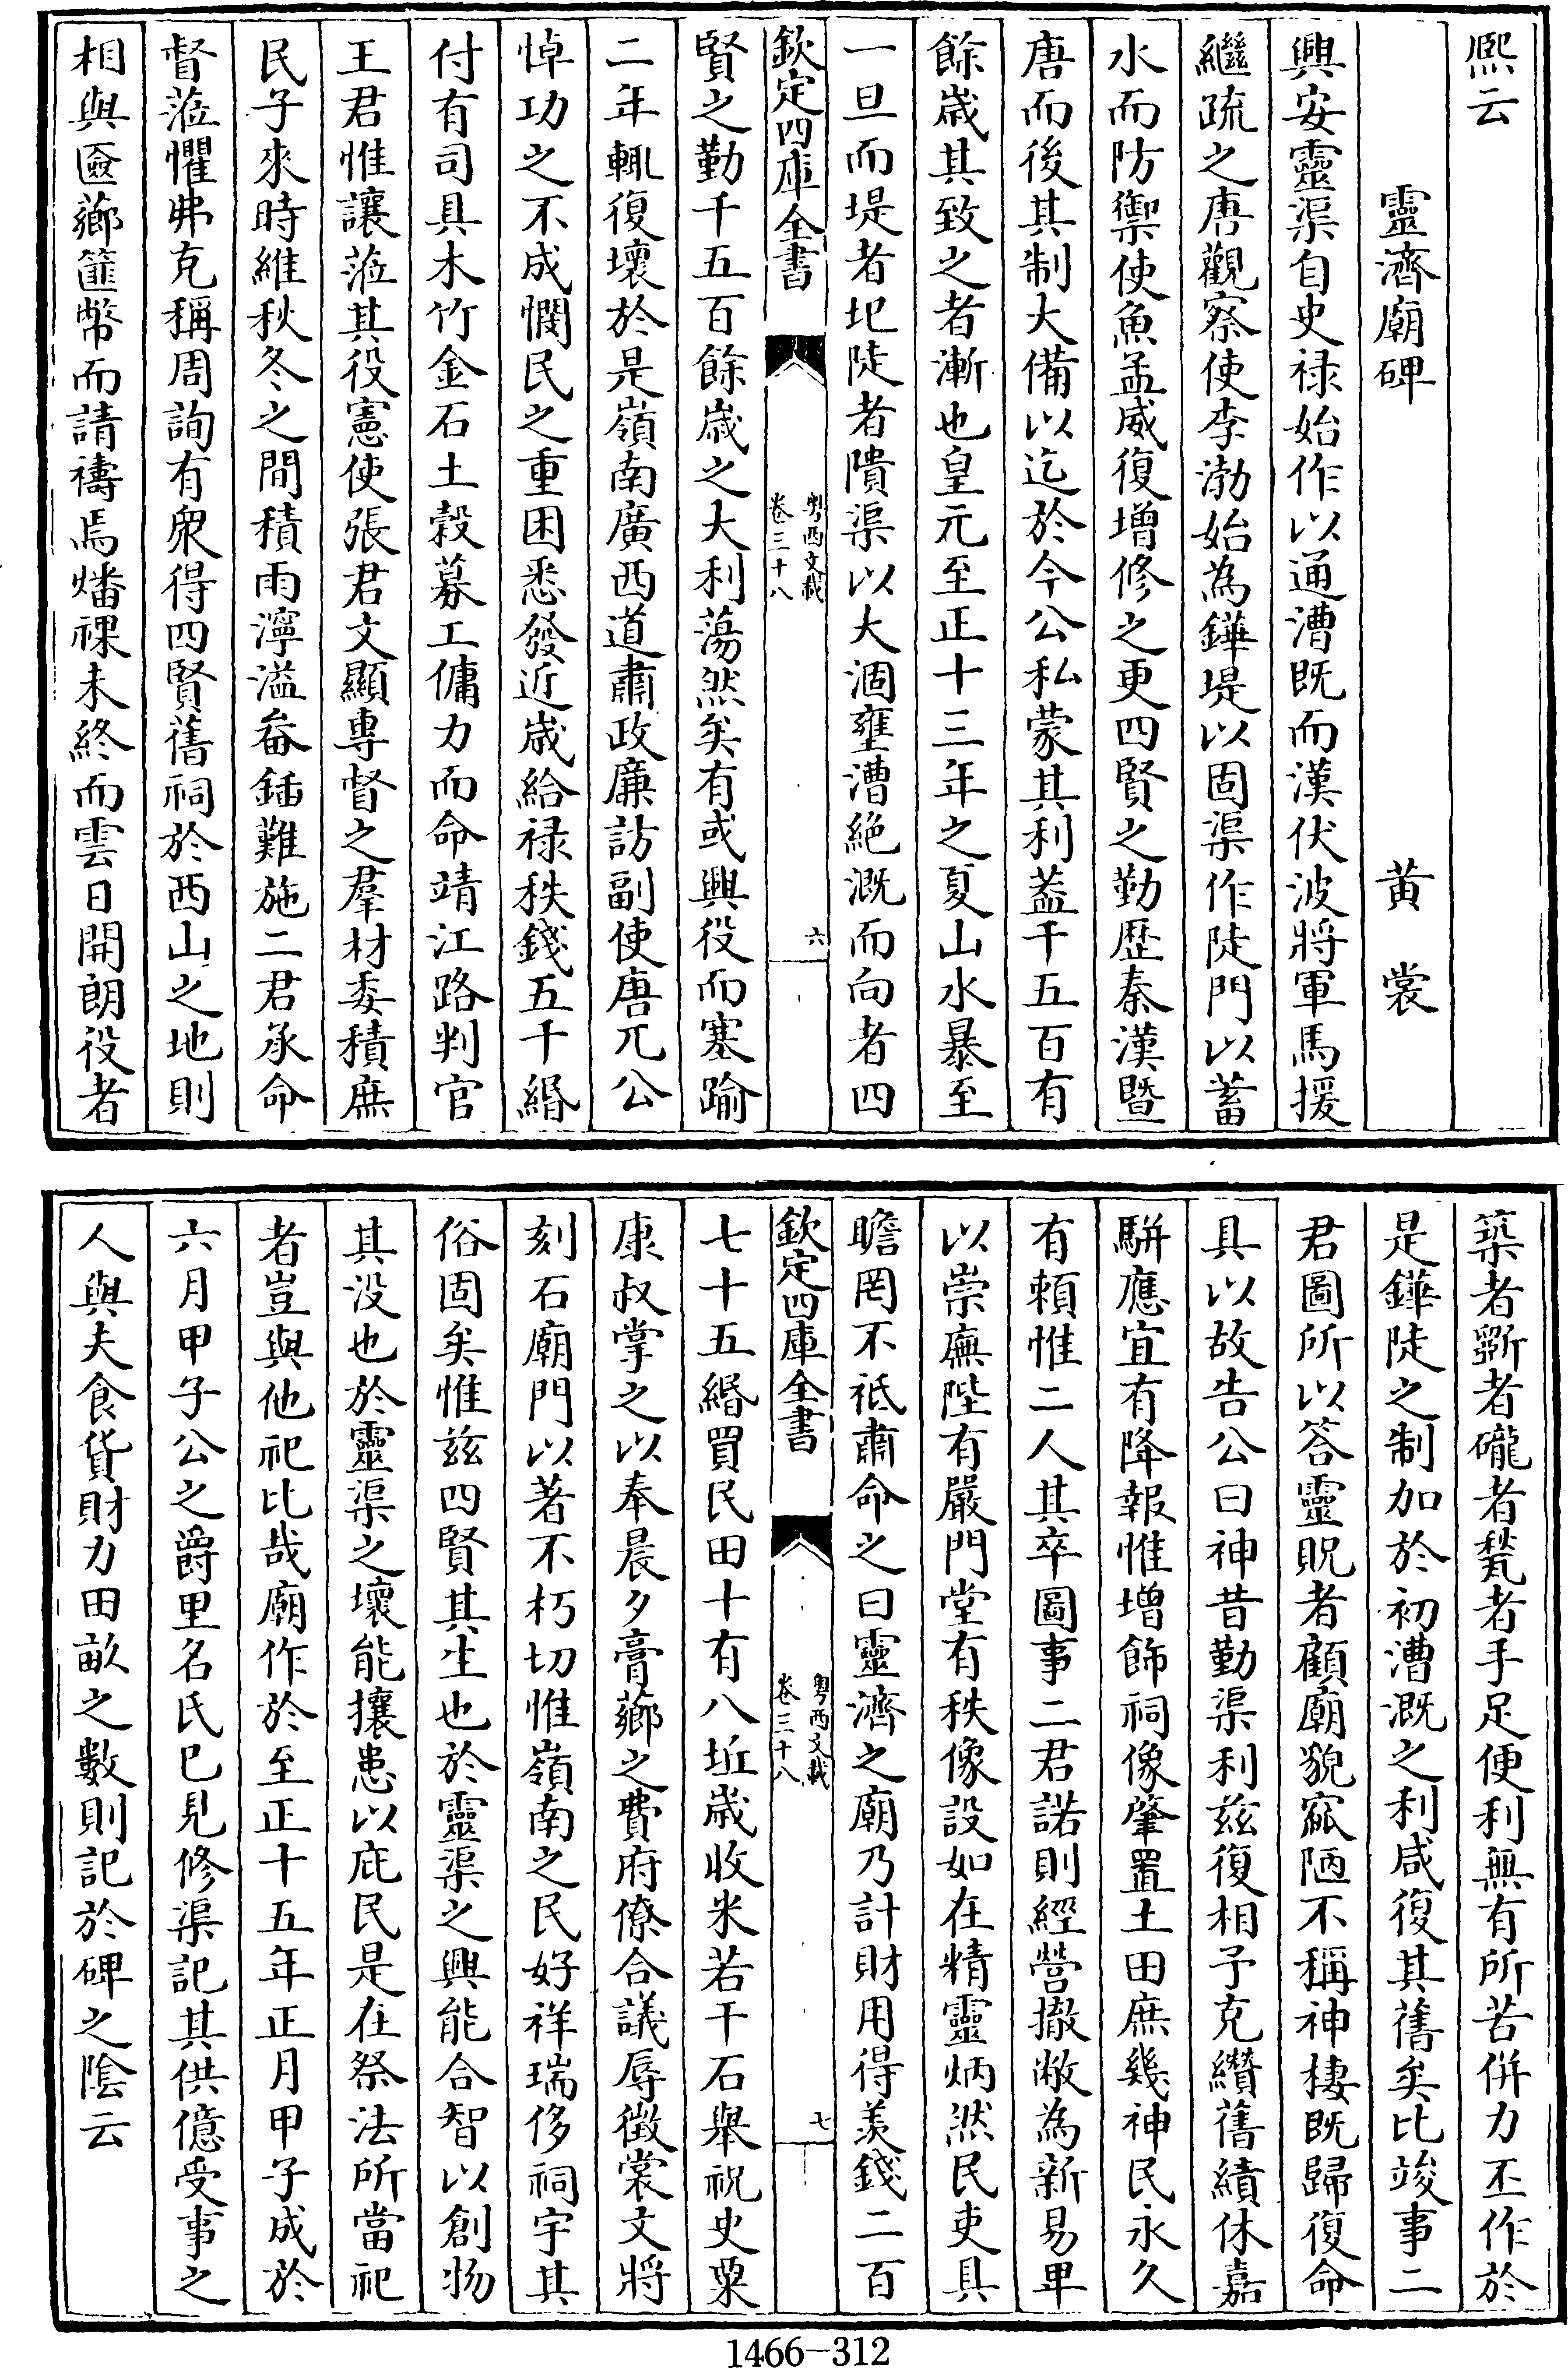 熙云
靈濟廟碑　黄裳
興安靈渠自史禄始作以通漕既而漢伏波將軍馬援
繼疏之唐觀察使李渤始為鏵堤以固渠作陡門以蓄
水而防禦使魚孟威復增修之更四賢之勤歴秦漢暨
唐而後其制大備以迄於今公私蒙其利葢千五百有
餘歳其致之者漸也皇元至正十三年之夏山水暴至
一旦而堤者圮陡者隤渠以大涸壅漕絶溉而向者四
欽定四庫全書
粤西文載
卷三十八
六
賢之勤千五百餘歳之大利蕩然矣有或興役而塞踰
二年輒復壞於是嶺南廣西道肅政廉訪副使唐兀公
悼功之不成憫民之重困悉發近歳給禄秩錢五千緡
付有司具木竹金石土穀募工傭力而命靖江路判官
王君惟讓蒞其役憲使張君文顯專督之羣材委積庶
民子來時維秋冬之間積雨濘溢畚鍤難施二君承命
督蒞懼弗克稱周詢有衆得四賢舊祠於西山之地則
相與匳薌篚幣而請禱焉燔祼未終而雲日開朗役者
築者斵者礲者甃者手足便利無有所苦併力丕作於
是鏵陡之制加於初漕溉之利咸復其舊矣比竣事二
君圖所以答靈貺者顧廟貌窳陋不稱神棲既歸復命
具以故告公曰神昔勤渠利兹復相予克纘舊績休嘉
駢應宜有降報惟增飾祠像肇置土田庶幾神民永久
有賴惟二人其卒圖事二君諾則經營撤敝為新易卑
以崇廡陛有嚴門堂有秩像設如在精靈炳然民吏具
瞻罔不祗肅命之曰靈濟之廟乃計財用得羡錢二百
欽定四庫全書
粤西文載
卷三十八
七
七十五緡買民田十有八坵歳收米若干石舉祝史粟
康叔掌之以奉晨夕膏薌之費府僚合議辱徴裳文將
刻石廟門以著不朽切惟嶺南之民好祥瑞侈祠宇其
俗固矣惟兹四賢其生也於靈渠之興能合智以創物
其没也於靈渠之壞能攘患以庇民是在祭法所當祀
者豈與他祀比哉廟作於至正十五年正月甲子成於
六月甲子公之爵里名氏已見修渠記其供億受事之
人與夫食貨財力田畝之數則記於碑之陰云
1466-312